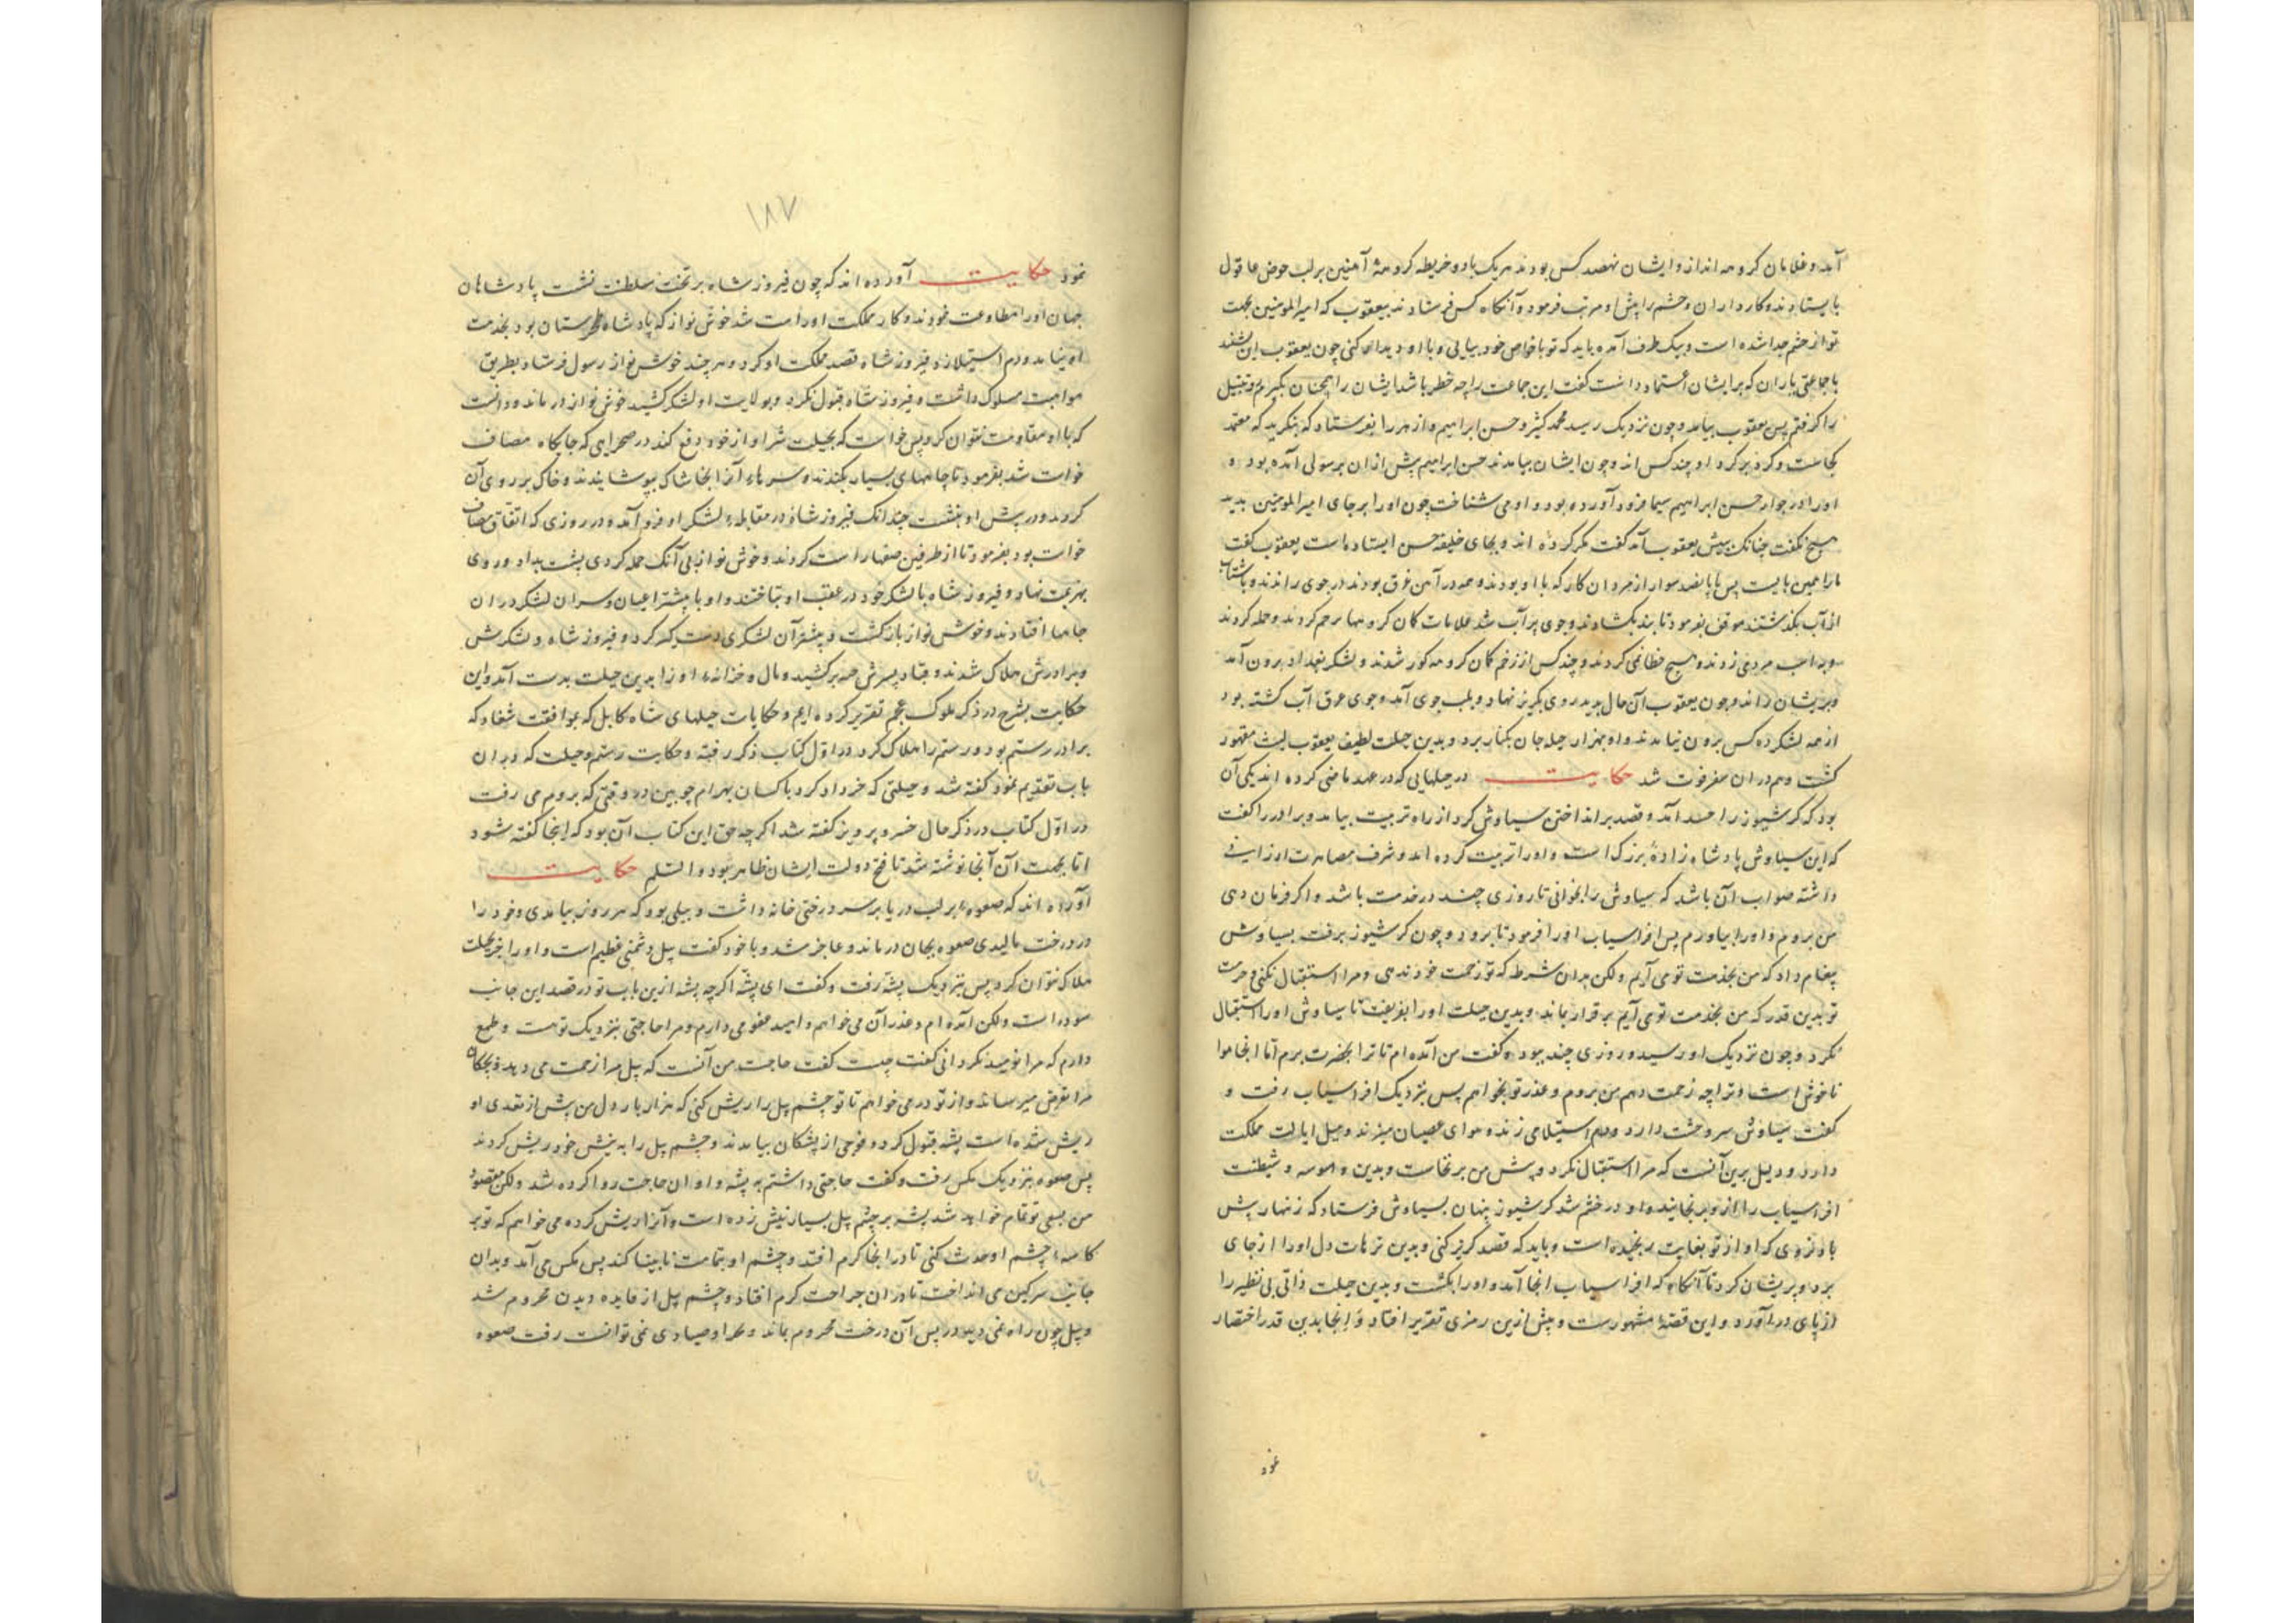 آمد و غلامان کروهه انداز و ایشان نهصد کس بودند هر یک با دو خریطه کروهه آهنین بر لب حوض ما قول
بایستادند و کارداران و حشم را پیش او مرتب فرمود و آنکاه کس فرستادند بیعقوب که امیرالمومنین بجهت
تو از حشم جدا شده است و بیک طرف آمده باید که تو با خواص خود بیایی و با او دیدار کنی چون یعقوب این بشنید
با جماعتی یاران که بر ایشان اعتماد داشت کفت این جماعت را چه خطر باشد ایشان را همچنان بکیرم و
را کرفتم پس یعقوب بیامد و چون نزدیک رسید محمد کثیر و حسن ابراهیم و ازهر را بفرستاد که بنکرید که معتمد
کجاست و کرد بر کرد او چند کس اند و چون ایشان بیامدند حسن ابراهیم پیش ازان برسولی آمده بود و
او را در جوار حسن ابراهیم سیما فرود آورده بود و او می شناخت چون او را بر جای امیرالمومنین بدید
هیچ نکفت چنانک پیش یعقوب آمد کفت مکر کرده اند و بجای خلیفه حسن ایستاده است یعقوب کفت
ما را همین بایست پس با پانصد سوار از مردان کار که با او بودند و همه در آهن غرق بودند در جوی راندند و باشتاب
از آب بکذشتند موفق بفرمود تا بند بکشادند و جوی پر آب شد غلامان کمان کروهها برحم کردند و حمله کردند
و بر اسب مردی زدند و هیچ خطا نمی کردند و چند کس از زخم کمان کروهه کور شدند و لشکر بغداد برون آمد
و بر ایشان زاند و چون یعقوب آن حال بدید روی بکریز نهاد و بلب جوی آمد و جوی غرق آب کشته بود
از همه لشکر ده کس برون نیامدند و او بهزار حیله جان بکنار برد و بدین حیلت لطیف یعقوب لیث مقهور
کشت و هم دران سفر فوت شد حکایت در حیلهایی که در عهد ماضی کرده اند یکی آن
بود که کرشیوز را حسد آمد و قصد برانداختن سیاوش کرد از راه تربیت بیامد و برادر را کفت
که این سیاوش پادشاه زادۀ بزرک است و او را تربیت کرده اند و شرف مصاهرت ارزانی
داشته صواب آن باشد که سیاوش را بخوانی تا روزی چند در خدمت باشد و اکر فرمان دهی
من بروم و او را بیاورم پس افراسیاب او را فرمود تا برود و چون کرشیوز برفت بسیاوش
پیغام داد که من بخدمت تو می آیم ولکن بدان شرط که تو زحمت خود ندهی و مرا استقبال نکنی و حرمت
تو بدین قدر که من بخدمت تو می آیم برقرار بماند و بدین حیلت او را بفریفت تا سیاوش او را استقبال
نکرد و چون نزدیک او رسید و روزی چند ببود و کفت من آمده ام تا ترا بحضرت برم اما انجا هوا
ناخوش است و ترا چه زحمت دهم من بروم و عذر تو بخواهم پس بنزدیک افراسیاب رفت و
کفت سیاوش سر وحشت دارد و دم استیلا می زند و هوای عصیان میپزد و میل ایالت مملکت
دارد و دلیل برین آنست که مرا استقبال نکرد و پیش من بر نخاست و بدین وسوسه و شیطنت
افراسیاب را ازو برنجانید و او در خشم شد کرشیوز پنهان بسیاوش فرستاد که زنهار پیش
با او نروی که او از تو بغایت رنجیده است و باید که قصد کریز کنی و بدین ترهات دل او را از جای
برد و پریشان کرد تا آنکاه که افراسیاب انجا آمد و او را بکشت و بدین حیلت ذاتی بی نظیر را
از پای درآورد و این قصۀ مشهورست و پیش ازین رمزی تقریر افتاد و اینجا بدین قدر اختصار
نمود
۱۸۷
نمود حکایت آورده اند که چون فیروز شاه بر تخت سلطنت نشست پادشاهان
جهان او را مطاوعت نمودند و کار مملکت او راست شد خوش نواز که پادشاه طخرستان بود بخدمت
او نیامد و دم استیلا زد فیروز شاه قصد مملکت او کرد و هر چند خوش نواز رسول فرستاد بطریق
مواهبت مسلوک داشت و فیروز شاه قبول نکرد و بولایت او لشکر کشید خوش نواز درماند و دانست
که با او مقاومت نتوان کرد پس خواست که بحیلت شر او از خود دفع کند در صحرایی که جایکاه مصاف
خواست شد بفرمود تا چاههای بسیار بکندند و سرهاء آنرا بخاشاک بپوشانیدند و خاک بر روی آن
کردند و در پیش او بنشست چندانک فیروز شاه در مقابلۀ لشکر او فرود آمد و در روزی که اتفاق مصاف
خواست بود بفرمود تا از طرفین صفها راست کردند و خوش نواز بی آنک حمله کردی پشت بداد و روی
بهزیمت نهاد و فیروز شاه با لشکر خود در عقب او بتاختند و او با بیشتر اعیان و سران لشکر دران
چاهها افتادند و خوش نواز باز کشت و بیشتر آن لشکری دستکیر کرد و فیروز شاه و لشکرش
و برادرش هلاک شدند و قباد پسرش سر برکشید و مال و خزانه او را بدین حیلت بدست آمد و این
حکایت بشرح در ذکر ملوک عجم تقریر کرده ایم و حکایات حیلهای شاه کابل که بموافقت شغاد که
برادر رستم بود و رستم را هلاک کرد در اول کتاب ذکر رفته و حکایت رستم و حیلت که در ان
باب تقدیم نمود کفته شد و حیلتی که خرداد کرد با کسان بهرام چوبین در وقتی که بروم می رفت
در اول کتاب در ذکر حال خسرو پرویز کفته شد اکر چه حق این کتاب آن بود که اینجا کفته شود
اما بجهت آن آنجا نوشته شد تا فتح دولت ایشان ظاهر بود و السلم حکایت
آورده اند که صعوه بر لب دریا بر سر درختی خانه داشت و پیلی بود که هر روز بیامدی و خود را
در درخت مالیدی صعوه بجان درماند و عاجز شد و با خود کفت پیل دشمنی عظیم است و او را جز بحیلت
هلاک نتوان کرد پس بنزدیک پشه رفت و کفت ای پشه اکر چه پشه ازین باب تو در قصد این جانب
سودا است ولکن آمده ام و عذر آن می خواهم و امید عفو می دارم و مرا حاجتی بنزدیک توست و طمع
دارم که مرا نومید نکردانی کفت چیست کفت حاجت من آنست که پیل مرا زحمت می دهد و بچکان
مرا تعرض میرساند و از تو درمی خواهم تا تو چشم پیل را ریش کنی که هزار بار دل من پیش از تعدی او
ریش شده است پشه قبول کرد و فوجی از پشکان بیامدند و چشم پیل را به نیش خود ریش کردند
پس صعوه بنزدیک مکس رفت و کفت حاجتی داشتم به پشه و او ان حاجت روا کرده شد ولکن مقصود
من بسعی تو تمام خواهد شد پشه بر چشم پیل بسیار نیش زده است و آنرا ریش کرده می خواهم که تو بر
کاسه چشم او حدث کنی تا در انجا کرم افتد و چشم او بتمامت نابینا کند پس مکس می آمد و بدان
جانب سرکین می انداخت تا دران جراحت کرم افتاد و چشم پیل از فایده دیدن محروم شد
و پیل چون راه نمی دید در پس آن درخت محروم بماند و بچرا و صیادی نمی توانست رفت صعوه